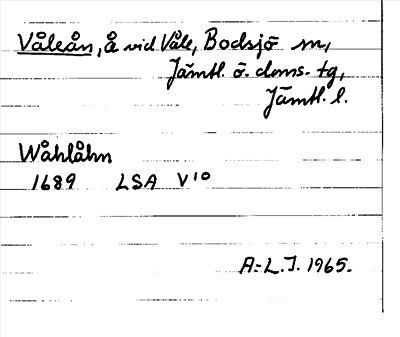 Våleån, Å vid Våle, Bodsjö sn,
Jämtl. ö. doms. tg,
Jämtl. l.
Wåhlåhn
1689 LSA V¹⁰
A.-L.J. 1965.